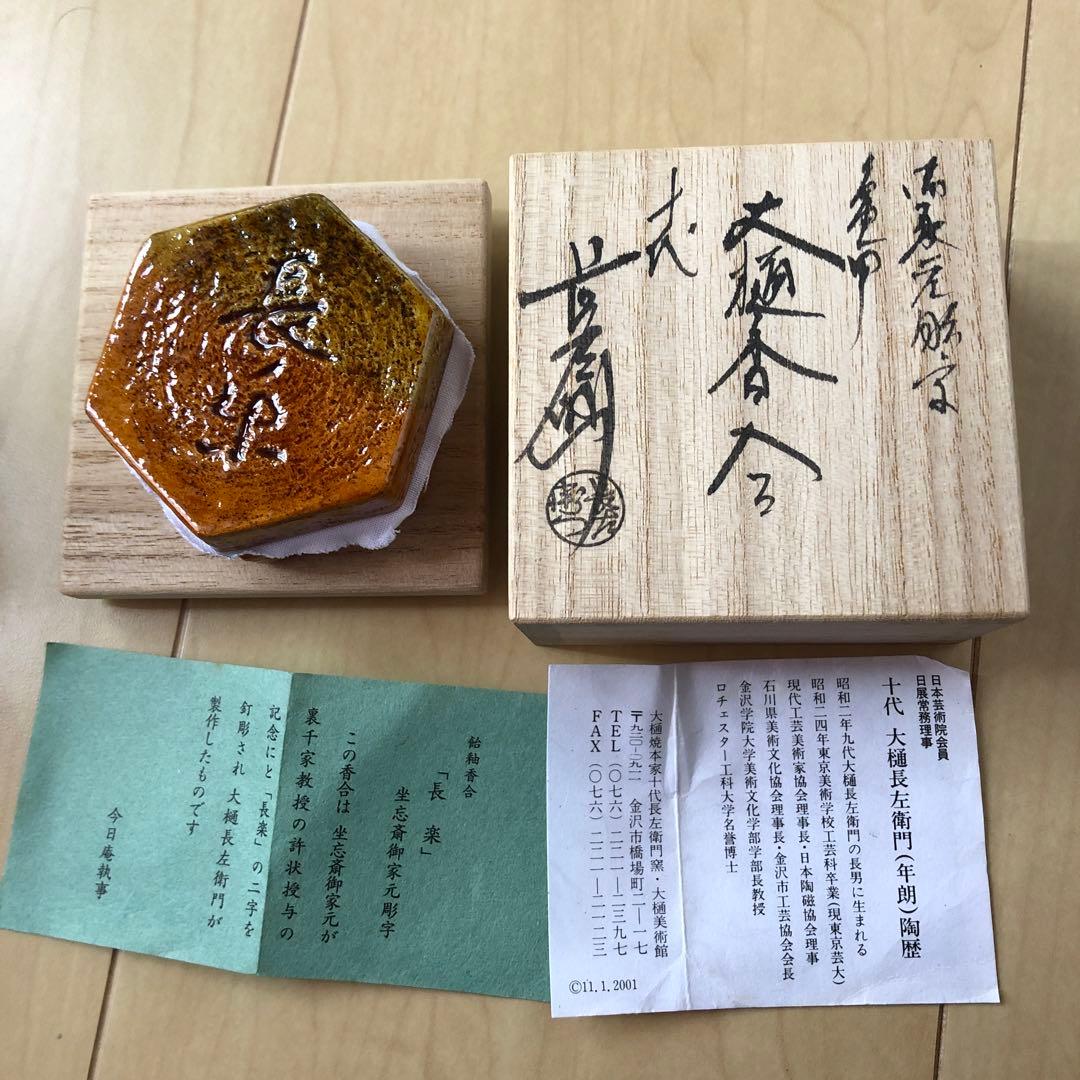 長
楽
亀甲
大樋香合
十代
長左衛門
飴釉香合
「長 楽」
坐忘斎御家元彫字
この香合は 坐忘斎御家元が
裏千家教授の許状授与の
記念にと「長楽」の二字を
釘彫され 大樋長左衛門が
製作したものです
今日庵執事
日本芸術院会員
日展常務理事
十代 大樋長左衛門(年朗)陶歴
昭和二年九代大樋長左衛門の長男に生まれる
昭和二四年東京美術学校工芸科卒業(現東京芸大)
現代工芸美術家協会理事長・日本陶磁協会理事
石川県美術文化協会理事長・金沢市工芸協会会長
金沢学院大学美術文化学部学部長教授
ロチェスター工科大学名誉博士
大樋焼本家十代長左衛門窯・大樋美術館
〒九二〇―〇九一一 金沢市橋場町二―一七
TEL(〇七六)二二一―二三九七
FAX(〇七六)二二一―二一二三
©11.1.2001